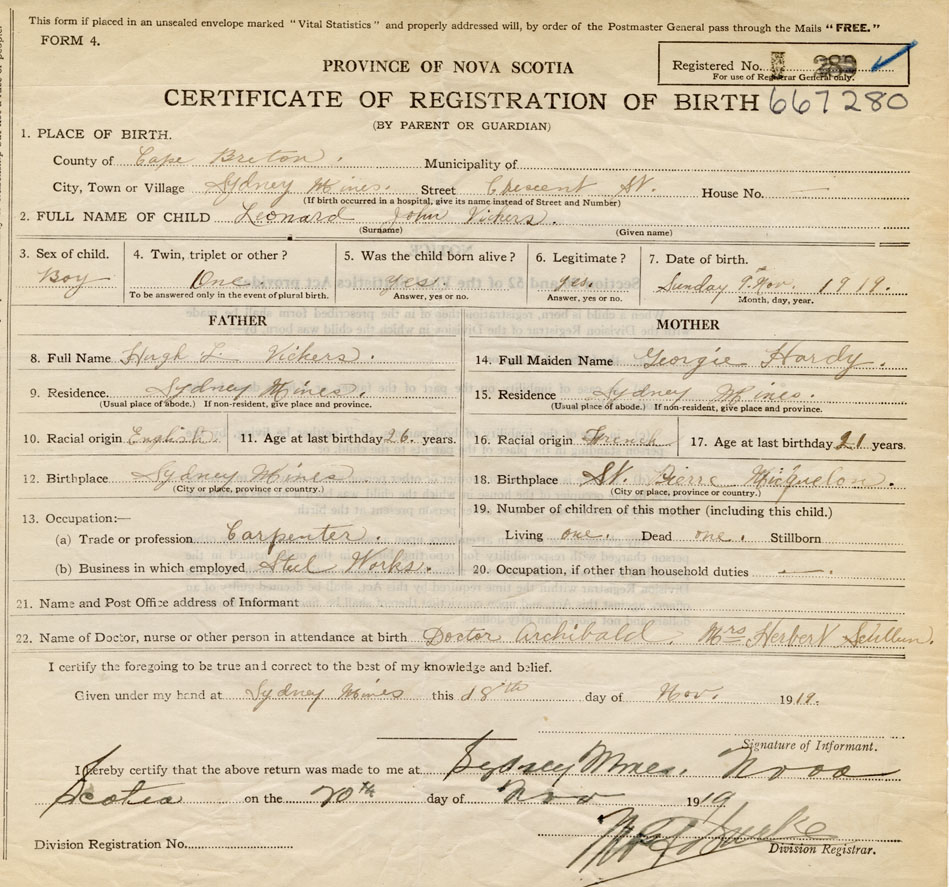 This form if placed in an unsealed envelope marked "Vital Statistics" and properly addressed will, by order of the Postmaster General pass through the Mails "FREE."
FORM 4.
Registered No.
For use of Registrar General only.
PROVINCE OF NOVA SCOTIA
CERTIFICATE OF REGISTRATION OF BIRTH 667280
(BY PARENT OR GUARDIAN)
1. PLACE OF BIRTH.
County of Cape Breton. Municipality of
City, Town or Village Sydney Mines. Street Crescent St. House No.
(If birth occurred in a hospital, give its name instead of Street and Number)
2. FULL NAME OF CHILD Leonard John Vickers.
(Surname) (Given name)
3. Sex of child. 4. Twin, triplet or other? 5. Was the child born alive? 6. Legitimate? 7. Date of birth.
Boy One yes. yes. Sunday 9th Nov. 1919.
To be answered only in the event of plural birth. Answer, yes or no. Answer, yes or no. Month, day, year.
FATHER MOTHER
8. Full Name Hugh L. Vickers. 14. Full Maiden Name Georgie Hardy.
9. Residence. Sydney Mines. 15. Residence Sydney Mines.
(Usual place of abode.) If non-resident, give place and province. (Usual place of abode.) If non-resident, give place and province.
10. Racial origin English. 11. Age at last birthday 26. years. 16. Racial origin French 17. Age at last birthday 21 years.
12. Birthplace Sydney Mines 18. Birthplace St. Pierre Micquelon.
(City or place, province or country.) (City or place, province or country.)
13. Occupation:— 19. Number of children of this mother (including this child.)
(a) Trade or profession Carpenter. Living one. Dead one. Stillborn
(b) Business in which employed Steel Works. 20. Occupation, if other than household duties —.
21. Name and Post Office address of Informant
22. Name of Doctor, nurse or other person in attendance at birth Doctor Archibald. Mrs Herbert
I certify the foregoing to be true and correct to the best of my knowledge and belief.
Given under my hand at Sydney Mines this 18th day of Nov. 1919.
Signature of Informant.
I hereby certify that the above return was made to me at Sydney Mines. Nova
Scotia on the 20th day of Nov 1919
Division Registration No. Division Registrar.